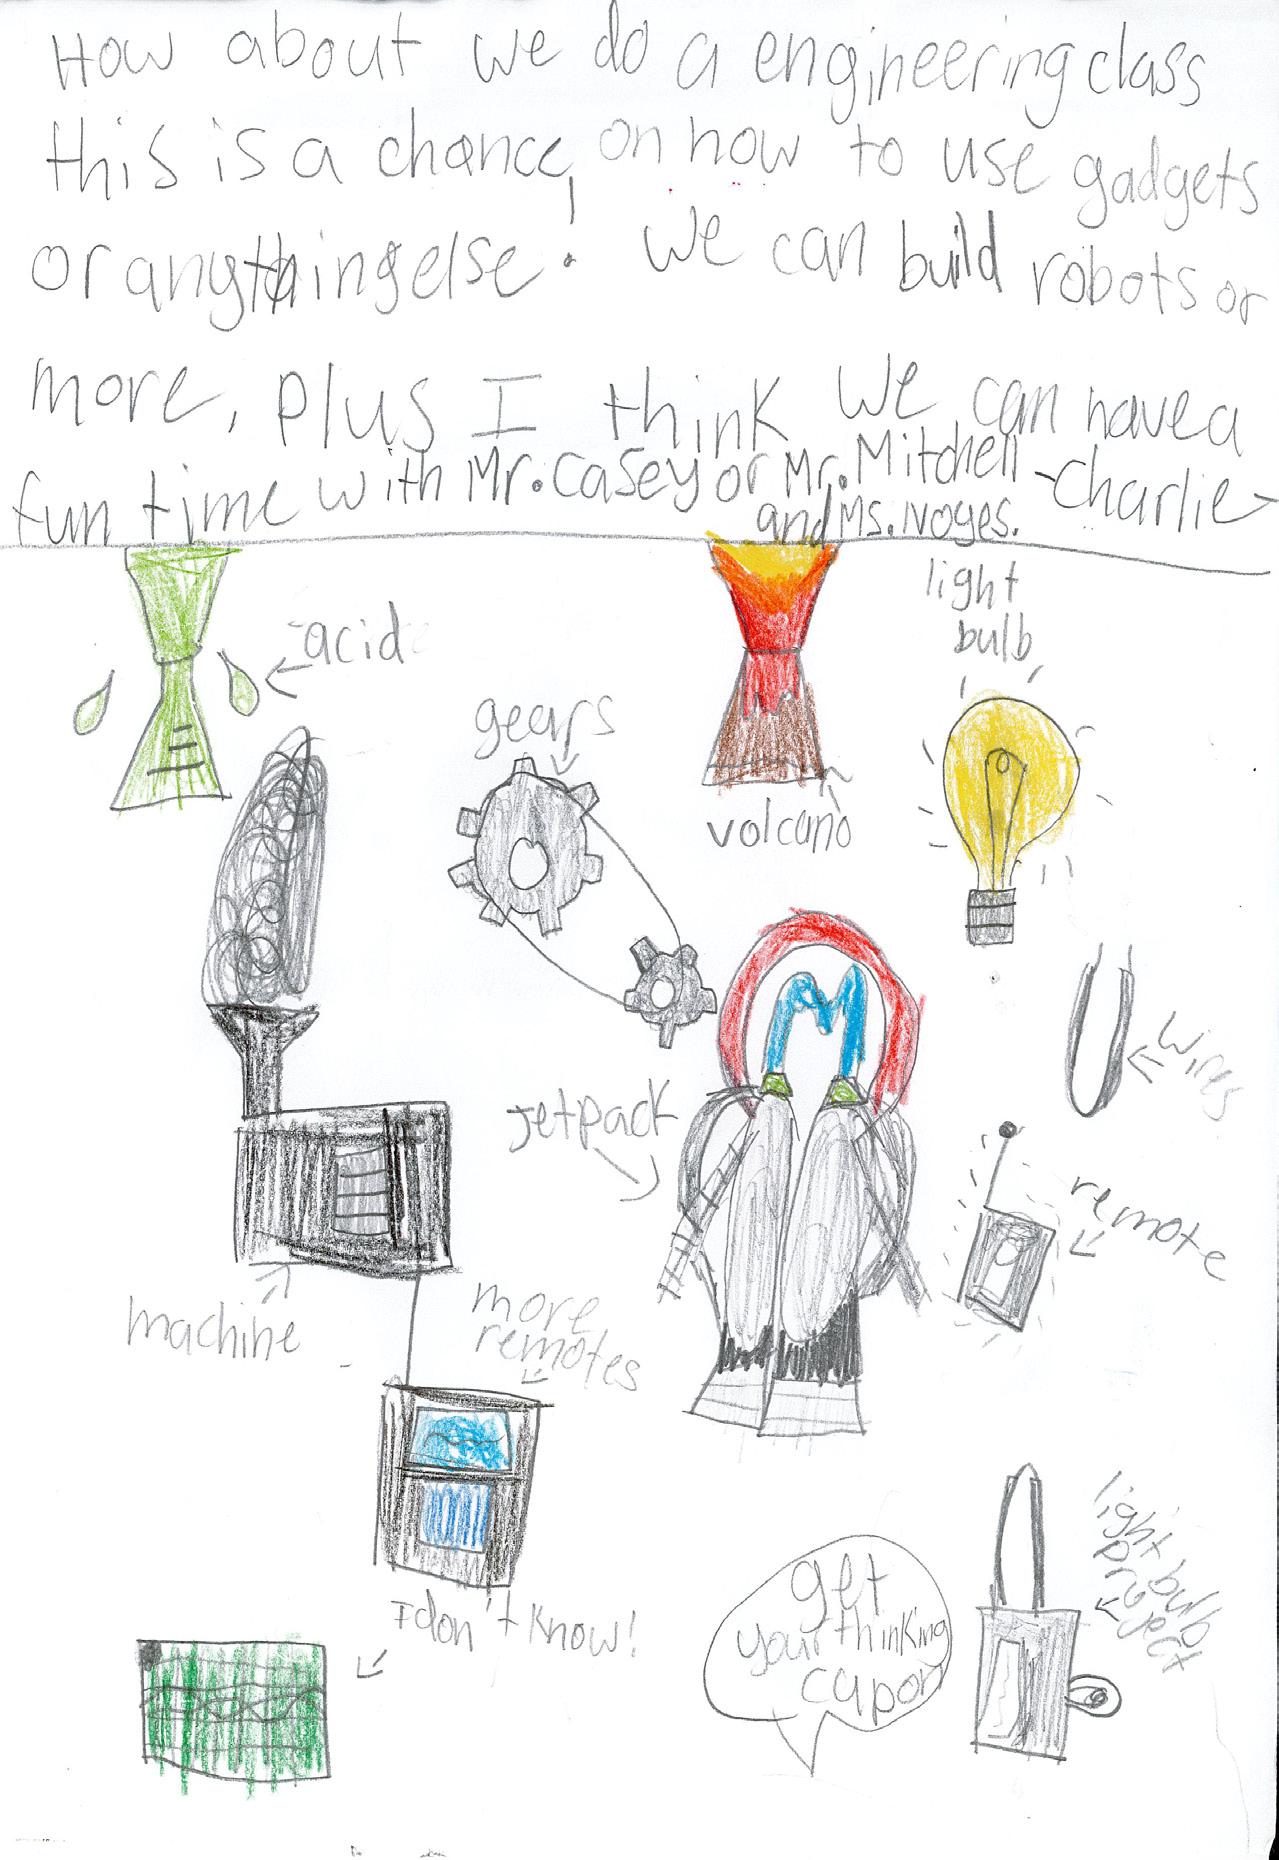 How about we do a engineering class
this is a chance, on how to use gadgets
or anything else! We can build robots or
more, plus I think we can have a
fun time with Mr. Casey or Mr. Mitchell
and Ms. Noyes.
-Charlie-
light
bulb
acid
gears
volcano
wires
Jetpack
remote
machine
more
remotes
I don't know!
get
your thinking
cap on
light bulb
project